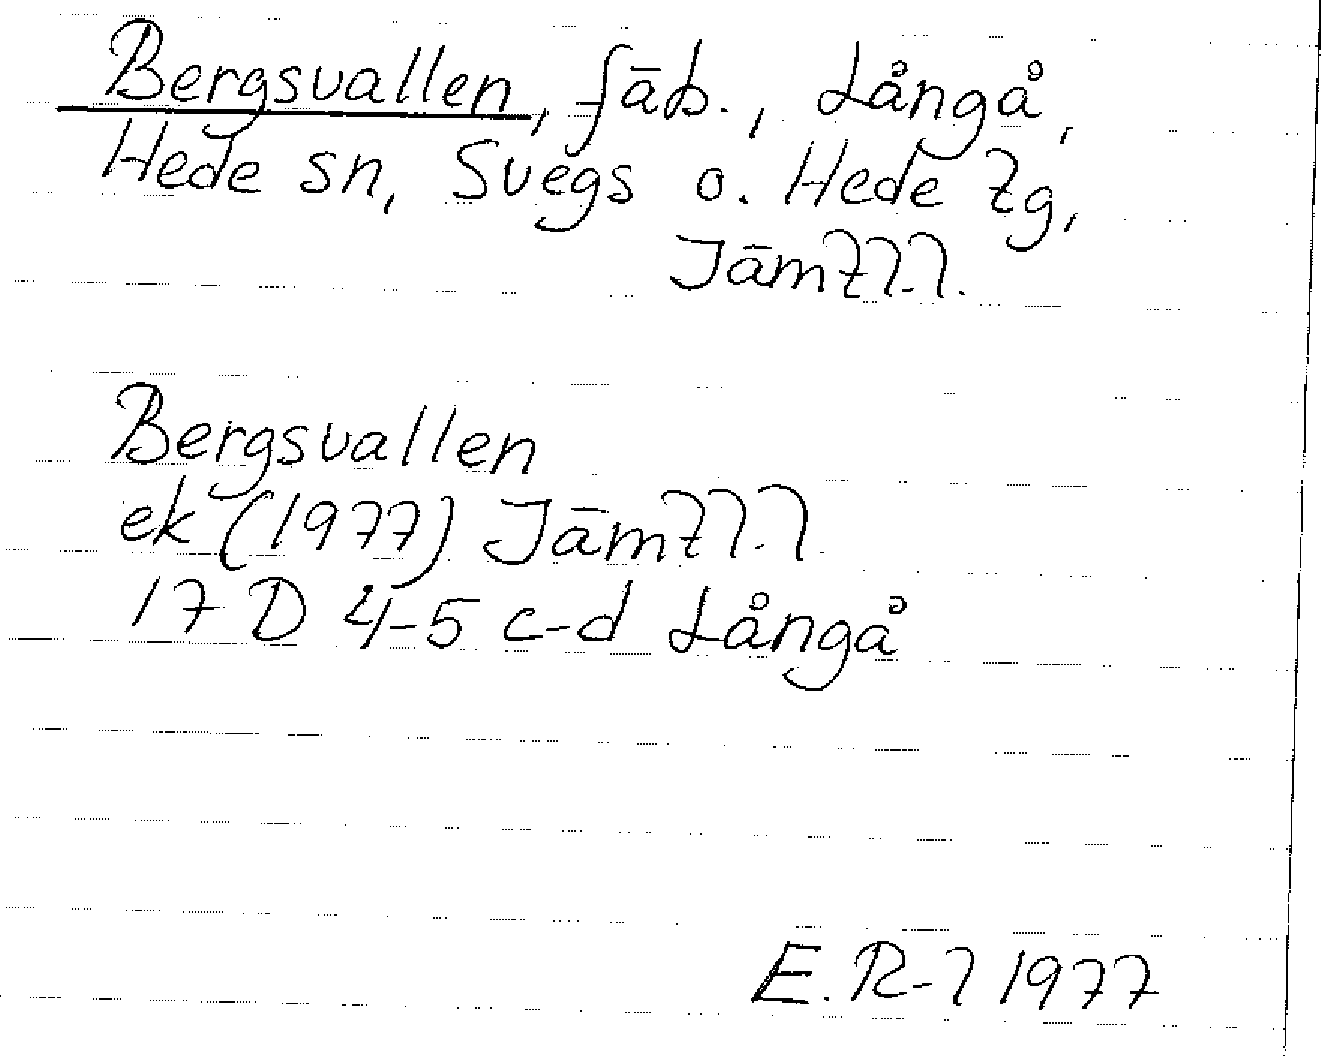 Bergsvallen, fäb., Långå,
Hede sn, Svegs o. Hede tg,
Jämtl.l.
Bergsvallen
ek (1977) Jämtl.l
17 D 4-5 c-d Långå
E.R-l 1977